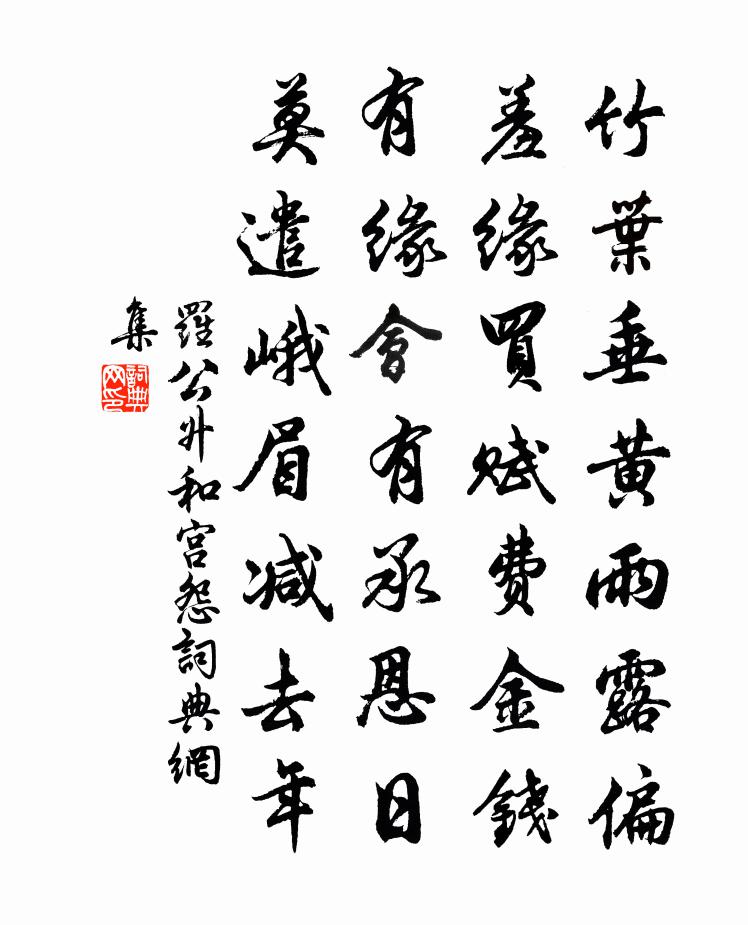 竹葉垂黄雨露偏
羞緣買賦費金錢
有緣會有承恩日
莫遣峨眉減去年
羅公升和宫怨詞典網
集
詞典
网印